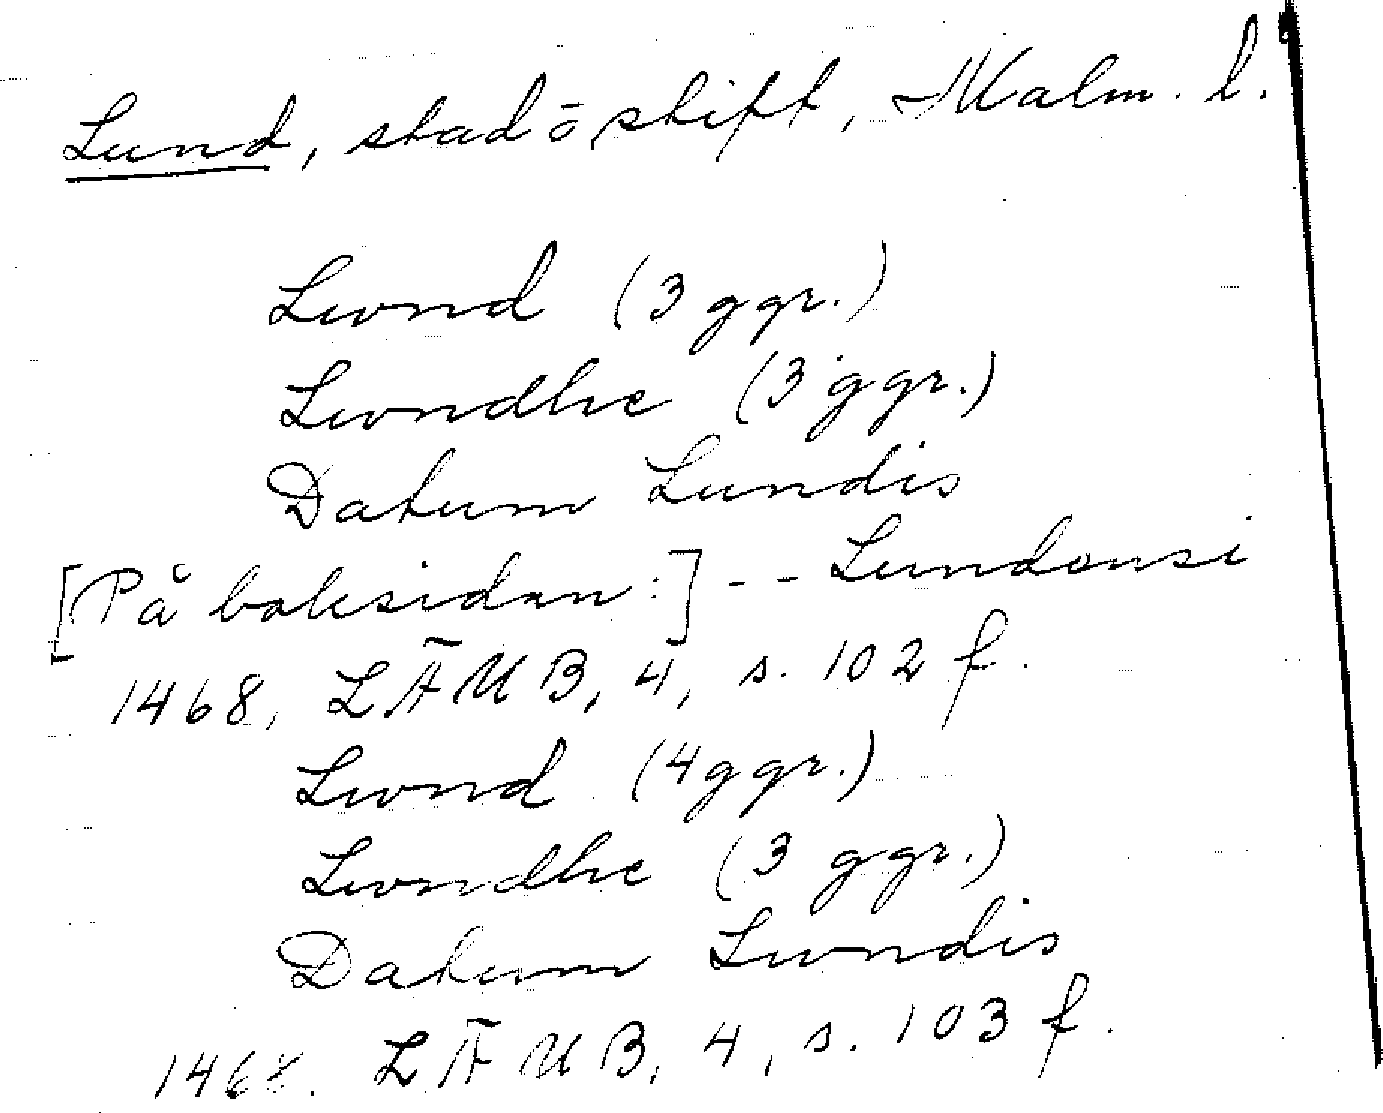 Lund, stad o stift, Malm. l.
Lwnd (3 ggr.)
Lwndhe (3 ggr.)
Datum Lundis
[På baksidan:] -- Lundensi
1468, LÄUB, 4, s. 102 f.
Lwnd (4 ggr.)
Lwndhe (3 ggr.)
Datum Lwndis
1468. LÄUB, 4, s. 103 f.